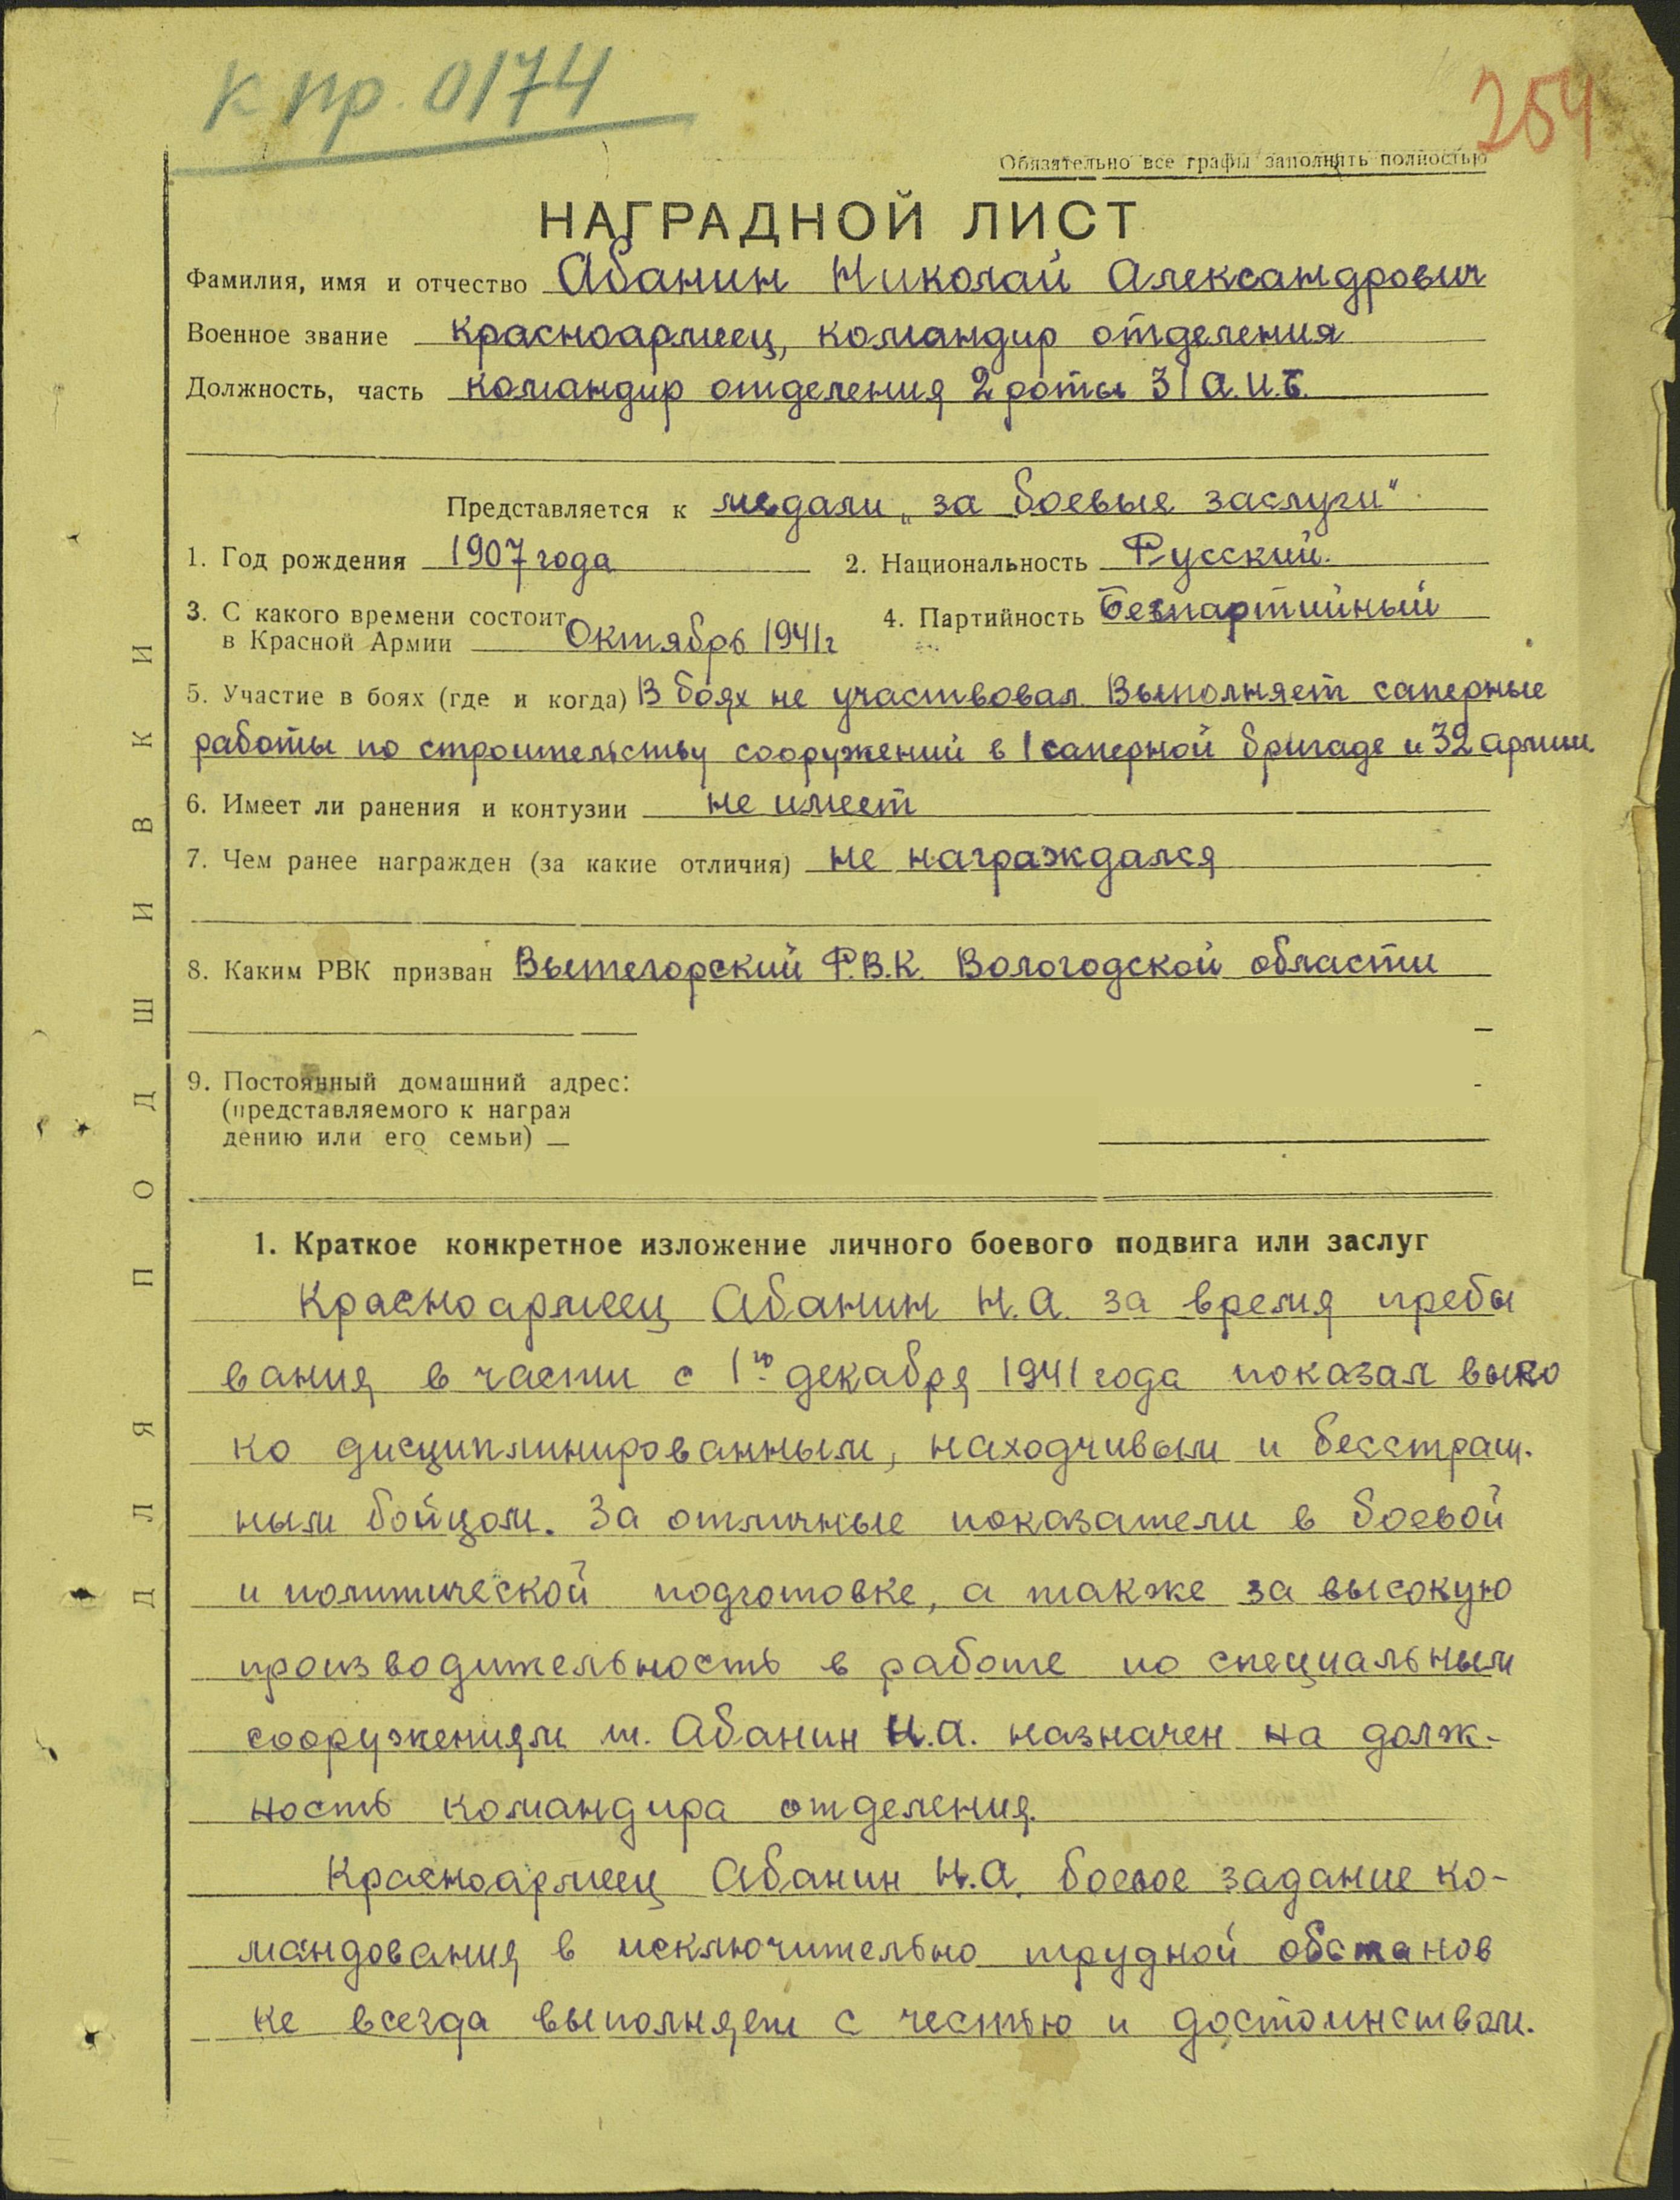 к пр. 0174
254
Обязательно все графы заполнять полностью
НАГРАДНОЙ ЛИСТ
Фамилия, имя и отчество Абанин Николай Александрович
Военное звание красноармеец, командир отделения
Должность, часть командир отделения 2 роты 31 А.И.Б.
Представляется к медали „за боевые заслуги"
1. Год рождения 1907 года 2. Национальность Русский.
3. С какого времени состоит
в Красной Армии Октябрь 1941г
4. Партийность Безпартийный
5. Участие в боях (где и когда) В боях не участвовал. Выполняет саперные
работы по строительству сооружений в 1 саперной бригаде и 32 армии
6. Имеет ли ранения и контузии не имеет
7. Чем ранее награжден (за какие отличия) не награждался
8. Каким РВК призван Вытегорский Р.В.К. Вологодской области
9. Постоянный домашний адрес:
(представляемого к награж
дению или его семьи)
1. Краткое конкретное изложение личного боевого подвига или заслуг
Красноармеец Абанин Н.А. за время пребы
вания в части с 1го декабря 1941 года показал высо
ко дисциплинированным, находчивым и бесстраш-
ным бойцом. За отличные показатели в боевой
и политической подготовке, а также за высокую
производительность в работе по специальным
сооружениям т. Абанин Н.А. назначен на долж-
ность командира отделения.
Красноармеец Абанин Н.А. боевое задание ко-
мандования в исключительно трудной обстанов
ке всегда выполняет с честью и достоинством.
ДЛЯ ПОДШИВКИ